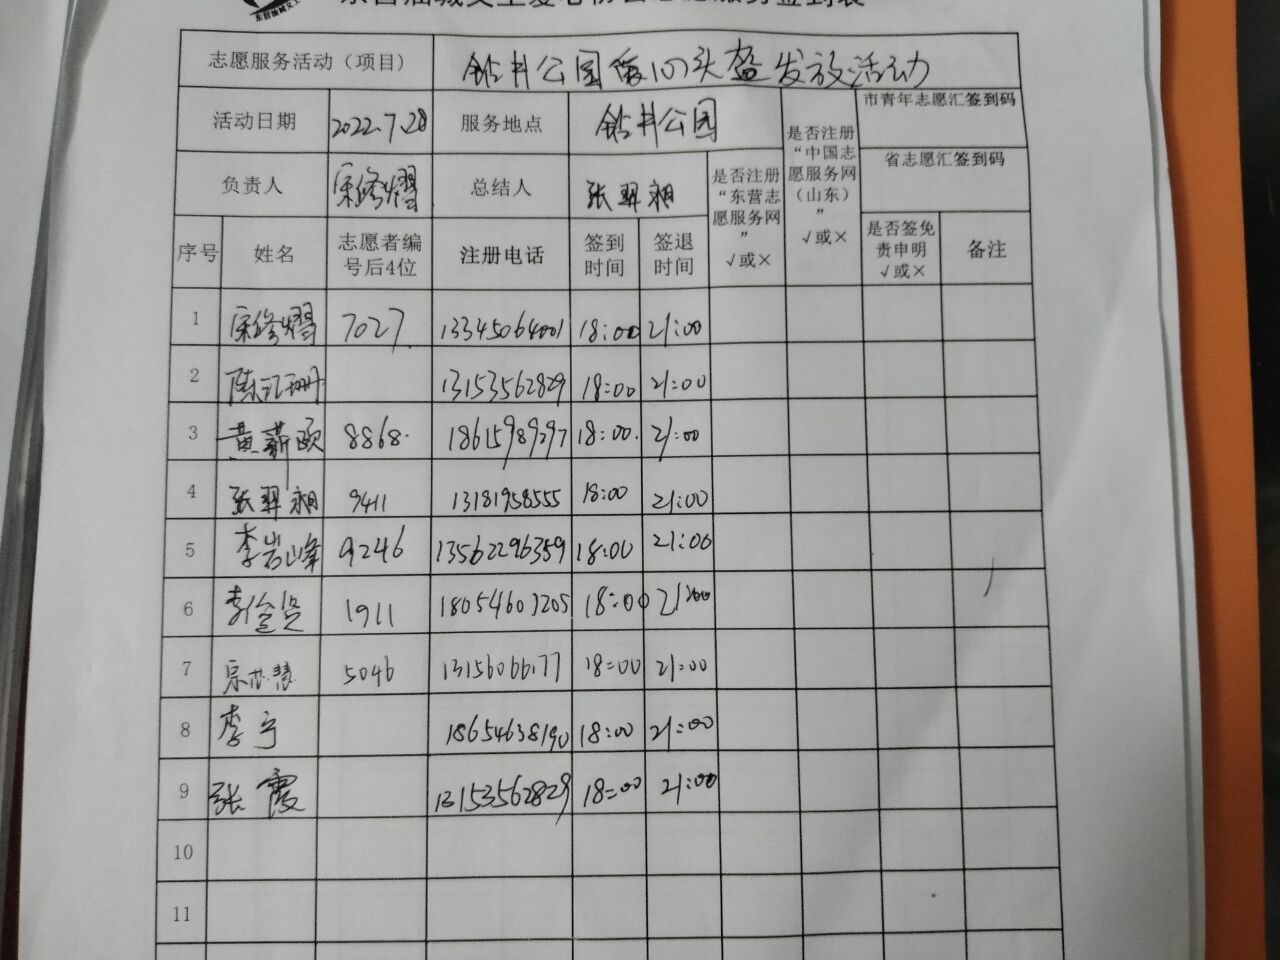 志愿服务活动（项目） 铅井公园第107头盔发放活动
活动日期 2022.7.28 服务地点 铅井公园 是否注册“中国志愿服务网（山东）” √或× 市青年志愿汇签到码
省志愿汇签到码
负责人 宋修熠 总结人 张翠翔 是否注册“东营志愿服务网” √或×
序号 姓名 志愿者编号后4位 注册电话 签到时间 签退时间 是否签免责申明 √或× 备注
1 宋修熠 7027 13345064001 18:00 21:00
2 陈汇珊 13153562829 18:00 21:00
3 黄薪颐 8868 18615989297 18:00 21:00
4 张翠翔 9411 13181958555 18:00 21:00
5 李岩峰 9246 13562296359 18:00 21:00
6 李 1911 18054607205 18:00 21:00
7 慧 5046 18:00 21:00
8 李宁 18654638190 18:00 21:00
9 张霞 13153562829 18:00 21:00
10
11